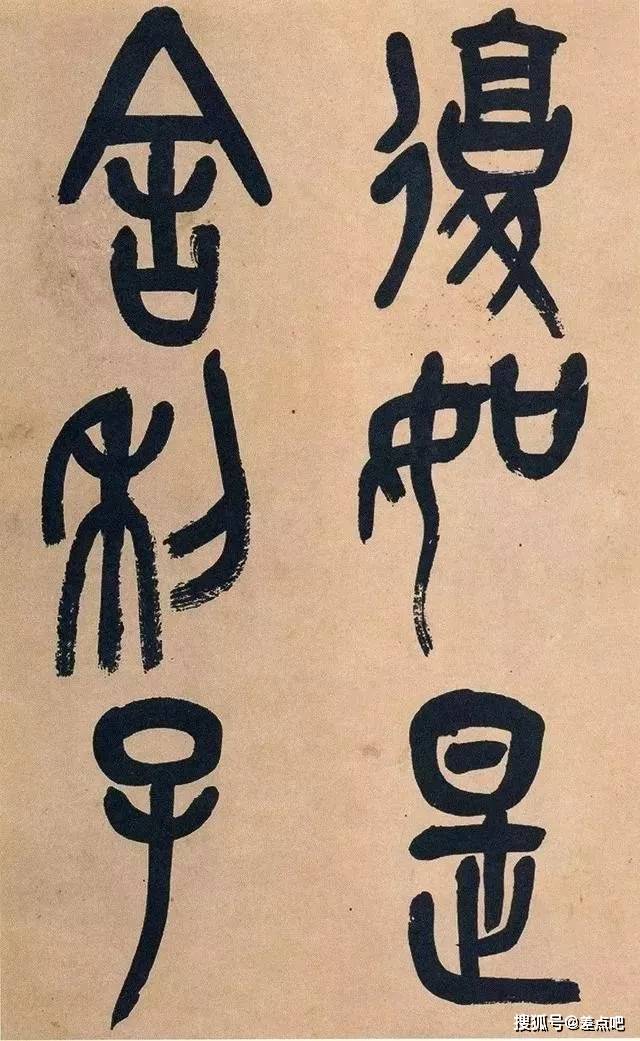 復如是
舍利子
搜狐号@差点吧